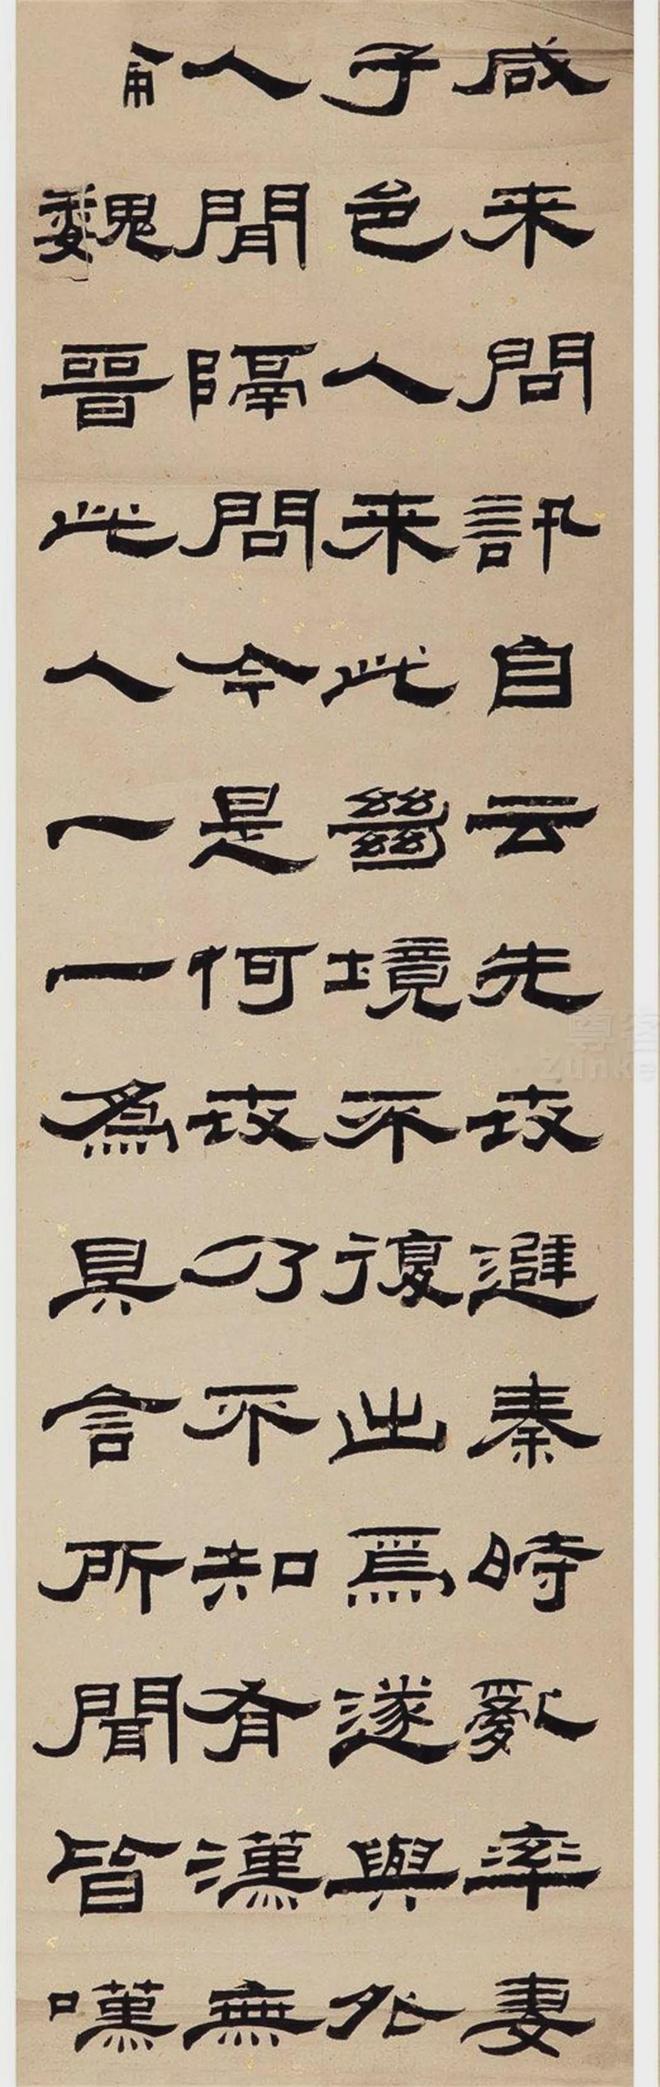 咸来問訊自云先世避秦時亂率妻
子邑人来此絕境不復出焉遂與外
人間隔問今是何世乃不知有漢無
侖魏晉此人一一為具言所聞皆嘆
尊客
Zunke